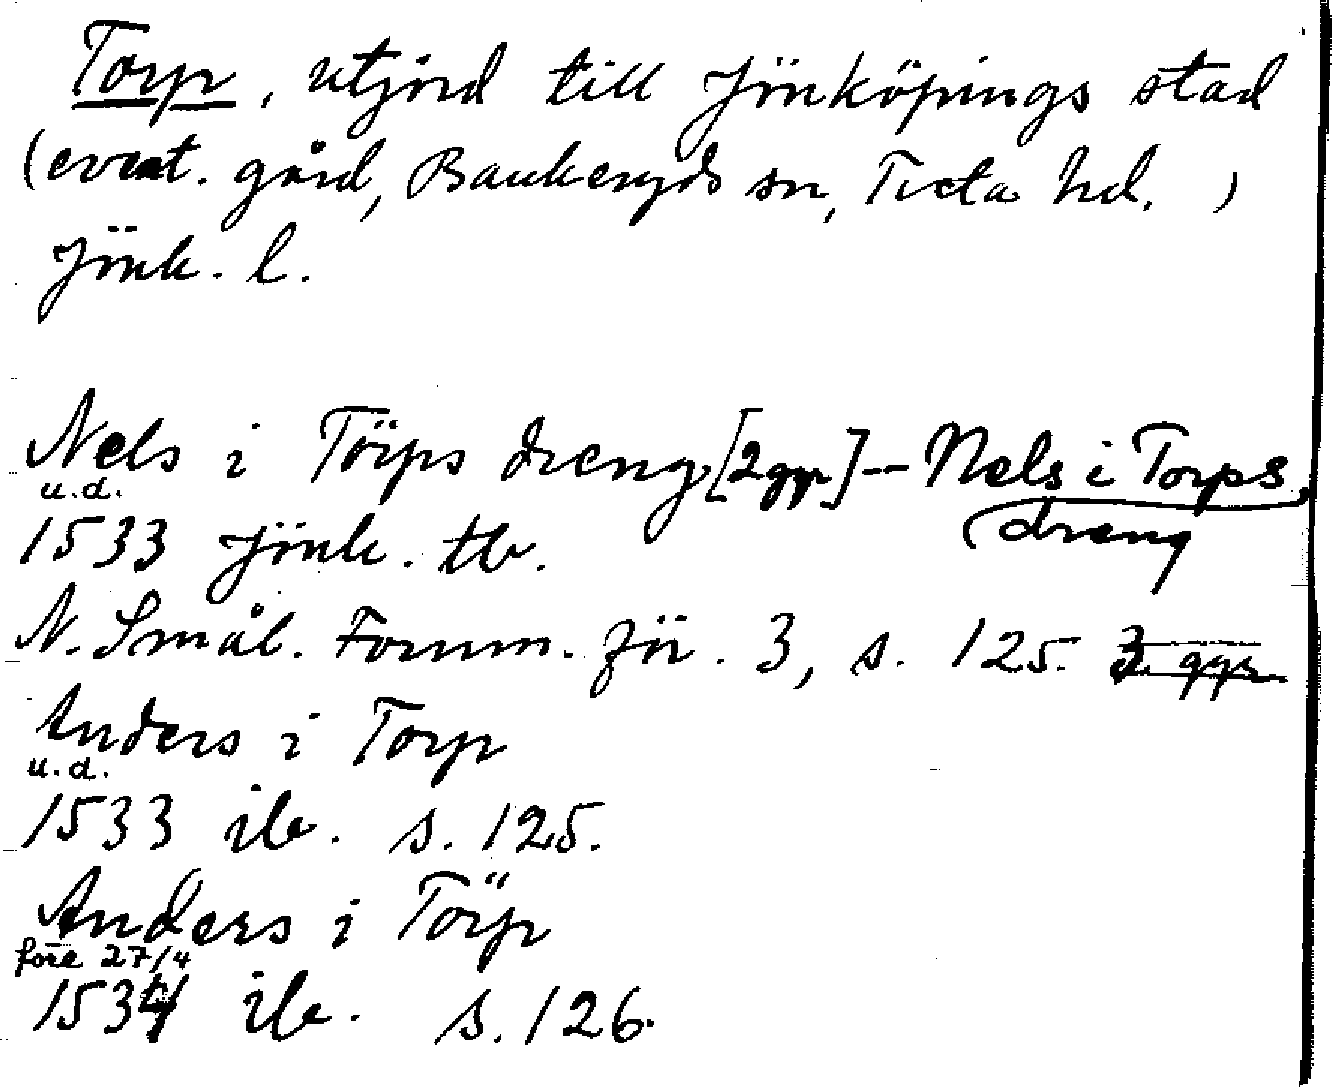 Torp, utjord till Jönköpings stad
(event. gård, Bankeryds sn, Tveta hd. )
Jönk. l.
Nels i Törps dreng [2 ggr] -- Nels i Torps
dreng
u.d.
1533 Jönk. tb.
N. Smål. Fornm. för. 3, s. 125. 3 ggr
Anders i Torp
u.d.
1533 ib. s. 125.
Anders i Törp
före 27/4
1534 ib. s. 126.